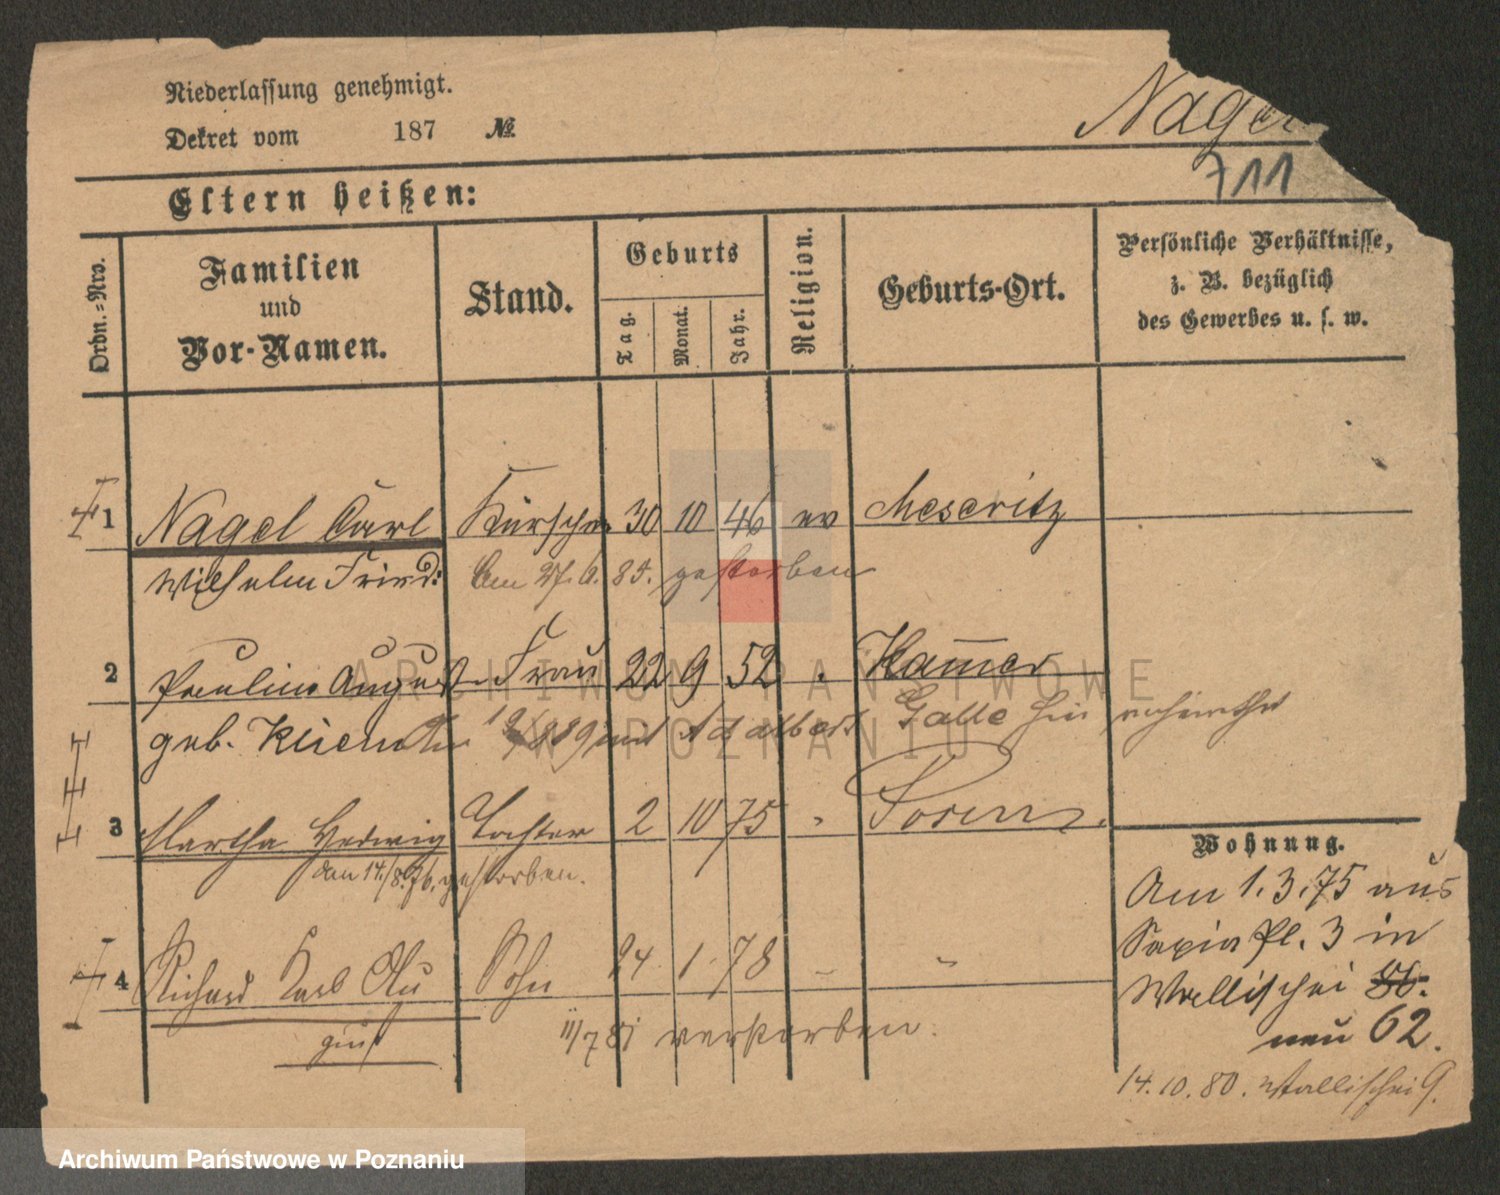 Niederlassung genehmigt.
Dekret vom 187 №
Nagel
711
Eltern heißen:
Ordn.-Nro.
Familien
und
Vor-Namen.
Stand.
Geburts
Tag.
Monat.
Jahr.
Religion.
Geburts-Ort.
Persönliche Verhältnisse,
z. B. bezüglich
des Gewerbes u. s. w.
1 Nagel Carl Kürschner 30 10 46 ev Meseritz
Wilhelm Fried: Am 27.6. 85. gestorben
2 Pauline August. Frau 22 9 52 Kamer
geb. mit Adalbert Galle
3 Martha Hedwig Tochter 2 10 75 " Posen
den 14./8.76. gestorben.
4 Richard Karl Au Sohn 24 1 78 " "
gust
11/7 81 verstorben.
Wohnung.
Am 1.3.75 aus
Sapia Pl. 3 in
Wallischei 86.
neu 62.
14.10.80. Wallischei 9.
ARCHIWUM PAŃSTWOWE
W POZNANIU
Archiwum Państwowe w Poznaniu